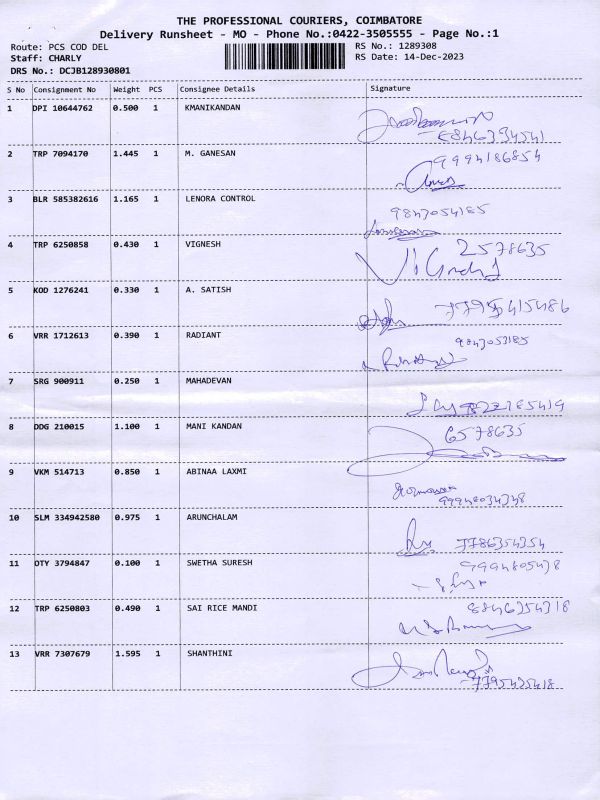 THE PROFESSIONAL COURIERS, COIMBATORE
Delivery Runsheet - MO - Phone No.:0422-3505555 - Page No.:1
Route: PCS COD DEL RS No.: 1289308
Staff: CHARLY RS Date: 14-Dec-2023
DRS No.: DCJB128930801
S No Consignment No Weight PCS Consignee Details Signature
1 DPI 10644762 0.500 1 KMANIKANDAN
2 TRP 7094170 1.445 1 M. GANESAN 9994186854
3 BLR 585382616 1.165 1 LENORA CONTROL 9843054185
4 TRP 6250858 0.430 1 VIGNESH 2578635
5 KOD 1276241 0.330 1 A. SATISH
6 VRR 1712613 0.390 1 RADIANT 9843053185
7 SRG 900911 0.250 1 MAHADEVAN
8 DDG 210015 1.100 1 MANI KANDAN 6578635
9 VKM 514713 0.850 1 ABINAA LAXMI
99948034348
10 SLM 334942580 0.975 1 ARUNCHALAM 7786354354
11 OTY 3794847 0.100 1 SWETHA SURESH 9994805438
12 TRP 6250803 0.490 1 SAI RICE MANDI 8846354318
13 VRR 7307679 1.595 1 SHANTHINI
7795435418